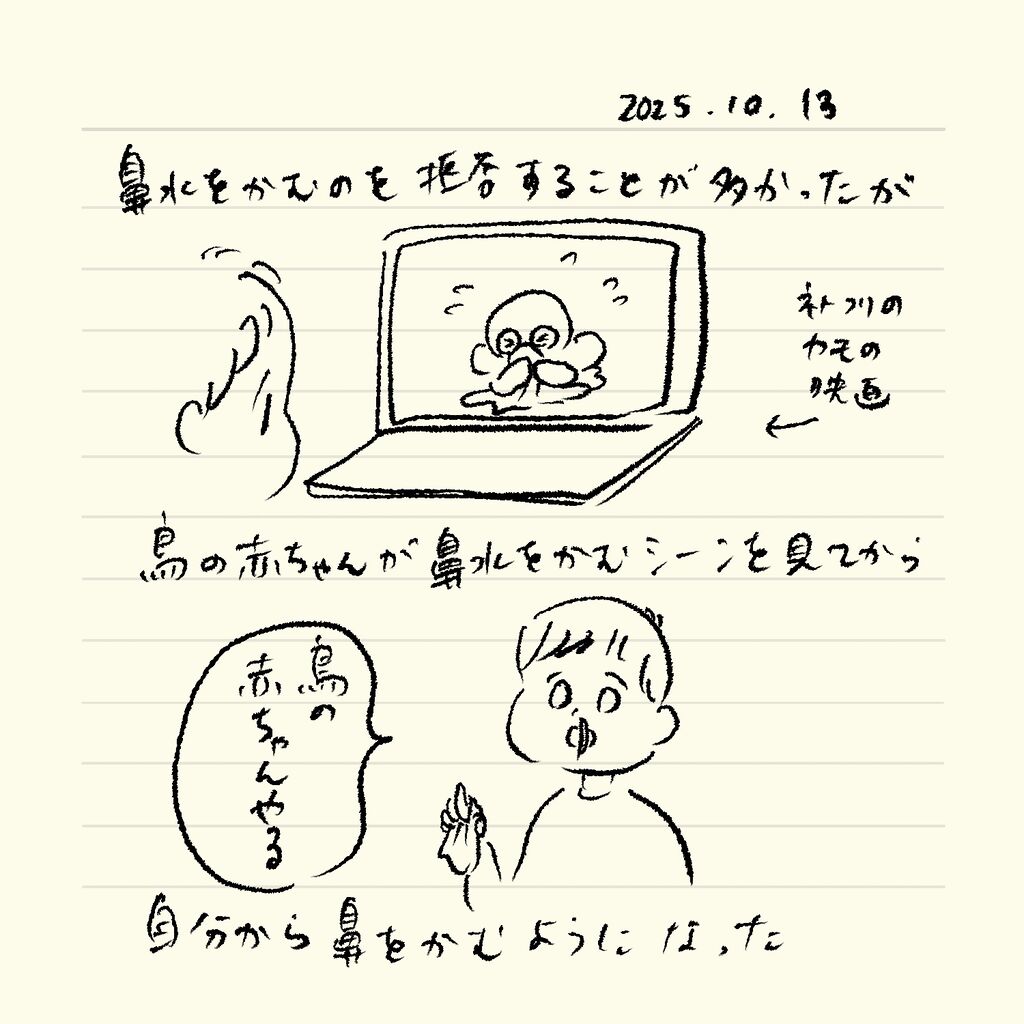 2025.10.13
鼻水をかむのを拒否することが多かったが
ネトフリの
カモの
映画
鳥の赤ちゃんが鼻水をかむシーンを見てから
鳥の
赤ちゃんやる
自分から鼻をかむようになった